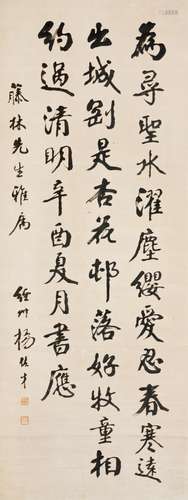 為尋聖水濯塵纓愛忍春寒遠
出城剛是杏花邨落好牧童相
約過清明辛酉夏月書應
藤林先生雅屬
徐州楊